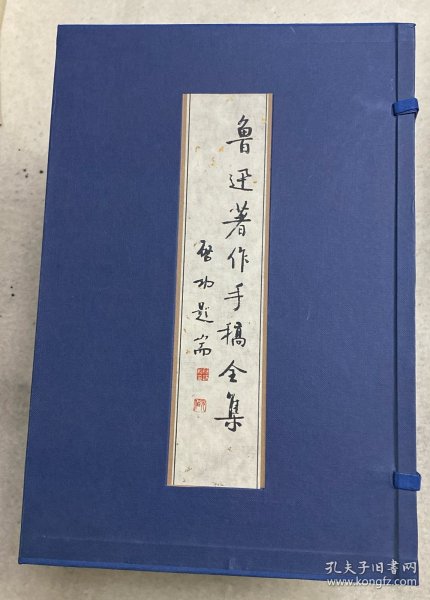 鲁迅著作手稿全集
启功题耑
孔夫子旧书网
www.kongfz.com